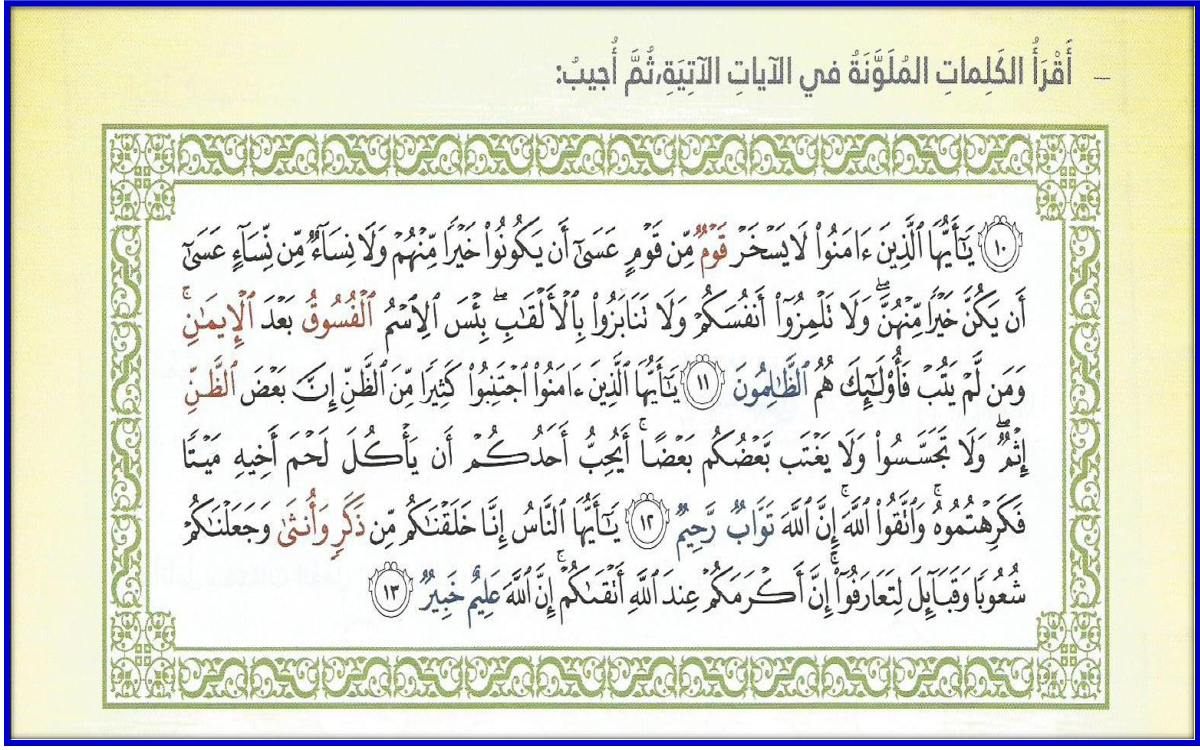 – أَقْرَأُ الكَلِماتِ المُلَوَّنَةُ في الآياتِ الآتِيَةِ،ثُمَّ أُجيبُ:
١٠ يَٰٓأَيُّهَا ٱلَّذِينَ ءَامَنُوا۟ لَا يَسْخَرْ قَوْمٌ مِّن قَوْمٍ عَسَىٰٓ أَن يَكُونُوا۟ خَيْرًا مِّنْهُمْ وَلَا نِسَآءٌ مِّن نِّسَآءٍ عَسَىٰٓ
أَن يَكُنَّ خَيْرًا مِّنْهُنَّ ۖ وَلَا تَلْمِزُوٓا۟ أَنفُسَكُمْ وَلَا تَنَابَزُوا۟ بِٱلْأَلْقَٰبِ ۖ بِئْسَ ٱلِٱسْمُ ٱلْفُسُوقُ بَعْدَ ٱلْإِيمَٰنِ ۚ
وَمَن لَّمْ يَتُبْ فَأُو۟لَٰٓئِكَ هُمُ ٱلظَّٰلِمُونَ ١١ يَٰٓأَيُّهَا ٱلَّذِينَ ءَامَنُوا۟ ٱجْتَنِبُوا۟ كَثِيرًا مِّنَ ٱلظَّنِّ إِنَّ بَعْضَ ٱلظَّنِّ
إِثْمٌ ۖ وَلَا تَجَسَّسُوا۟ وَلَا يَغْتَب بَّعْضُكُم بَعْضًا ۚ أَيُحِبُّ أَحَدُكُمْ أَن يَأْكُلَ لَحْمَ أَخِيهِ مَيْتًا
فَكَرِهْتُمُوهُ ۚ وَٱتَّقُوا۟ ٱللَّهَ ۚ إِنَّ ٱللَّهَ تَوَّابٌ رَّحِيمٌ ١٢ يَٰٓأَيُّهَا ٱلنَّاسُ إِنَّا خَلَقْنَٰكُم مِّن ذَكَرٍ وَأُنثَىٰ وَجَعَلْنَٰكُمْ
شُعُوبًا وَقَبَآئِلَ لِتَعَارَفُوٓا۟ ۚ إِنَّ أَكْرَمَكُمْ عِندَ ٱللَّهِ أَتْقَىٰكُمْ ۚ إِنَّ ٱللَّهَ عَلِيمٌ خَبِيرٌ ١٣